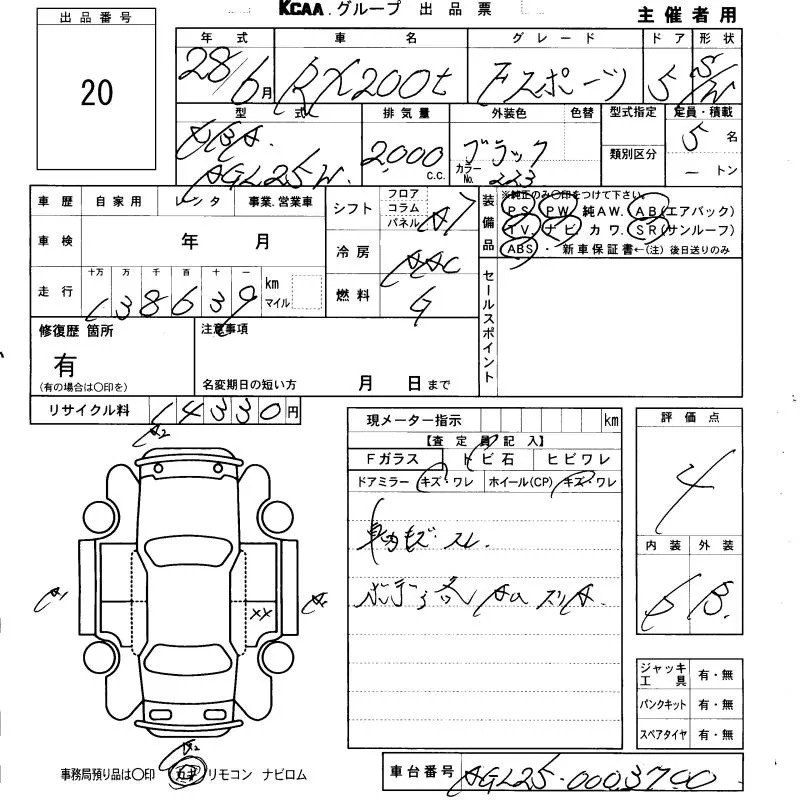 KCAA.グループ 出品票
主催者用
出品番号
20
年式 車名 グレード ドア 形状
28/6月 RX200t Fスポーツ 5 S/W
型式 排気量 外装色 色替 型式指定 定員・積載
DBA. AGL25W. 2,000 C.C. ブラック カラーNo. 223 類別区分 5名
－トン
車歴 自家用 レンタ 事業.営業車
シフト フロア コラム パネル A7
装備品 ※純正のみ○印をつけて下さい
PS PW 純AW. AB(エアバック)
TV. ナビ カワ. SR(サンルーフ)
ABS・ 新車保証書←(注) 後日送りのみ
車検 年 月
冷房 AAC
走行 十万 万 千 百 十 一 km マイル
138639
燃料 G
セールスポイント
修復歴 箇所 注意事項
有
(有の場合は○印を) 名変期日の短い方 月 日まで
リサイクル料 14330円
現メーター指示 km
【査定員記入】
Fガラス トビ石 ヒビワレ
ドアミラー キズ・ワレ ホイール(CP) キズ・ワレ
キズ・スレ.
評価点
4
内装 外装
B.
A2
A1
XX
ジャッキ工具 有・無
パンクキット 有・無
スペアタイヤ 有・無
事務局預り品は○印 カギ リモコン ナビロム
車台番号 AGL25-0003700